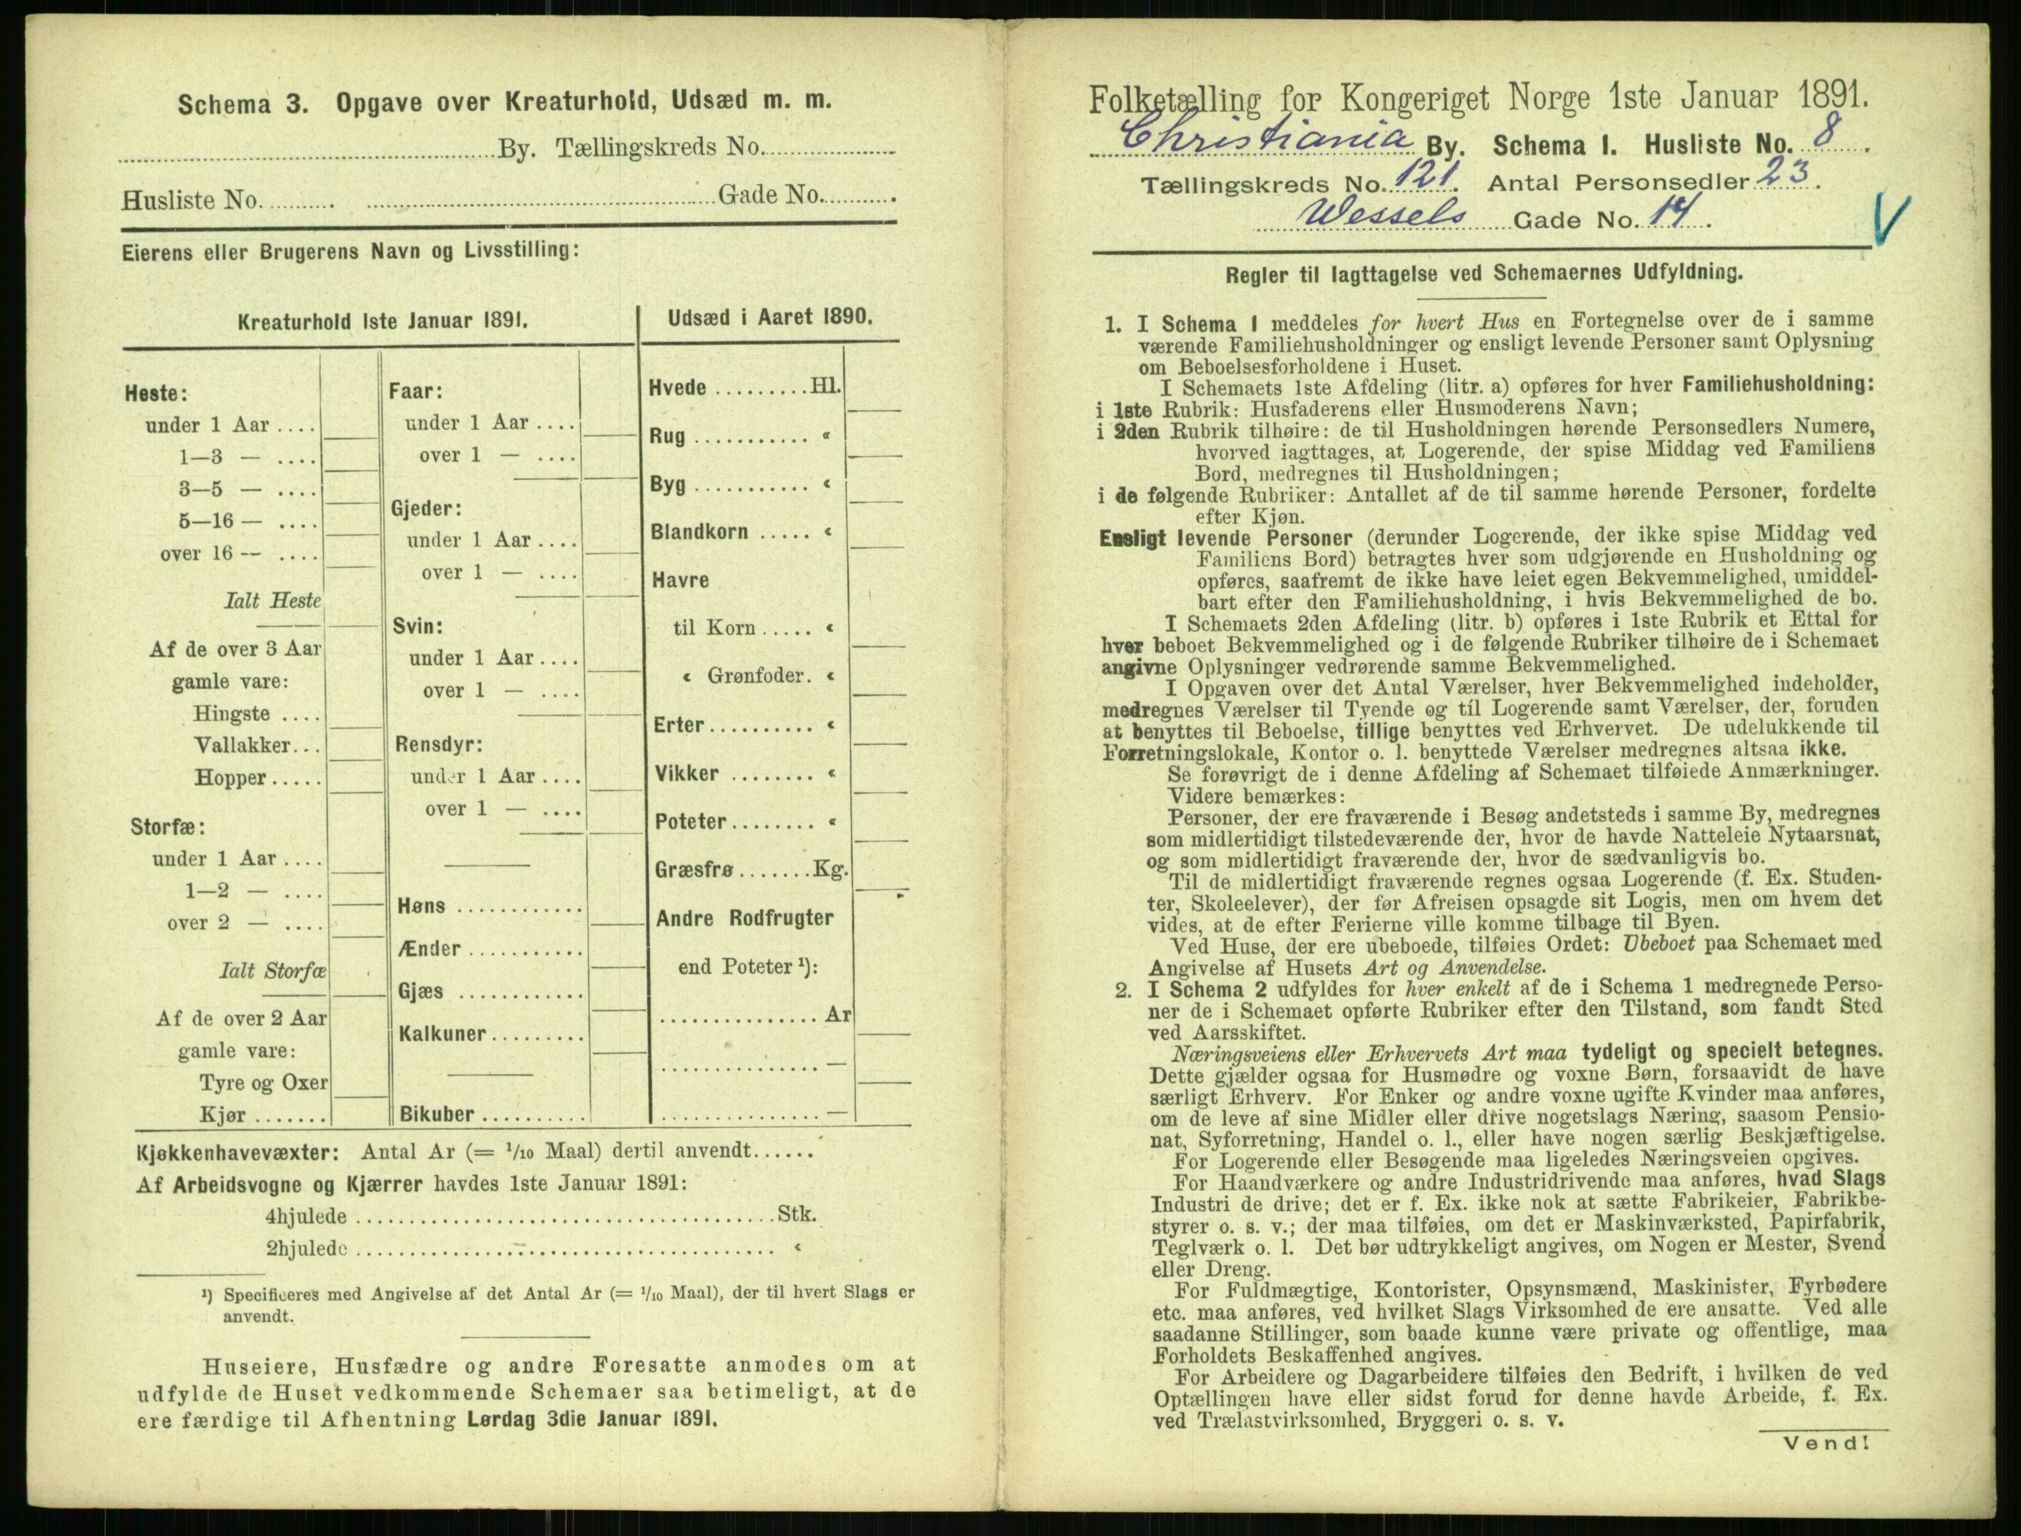 Schema 3. Opgave over Kreaturhold, Udsæd m. m.
By. Tællingskreds No.
Husliste No. Gade No.
Eierens eller Brugerens Navn og Livsstilling:
Kreaturhold 1ste Januar 1891.
Heste:
under 1 Aar ....
1—3 — ....
3—5 — ....
5—16 — ....
over 16 — ....
Ialt Heste
Af de over 3 Aar
gamle vare:
Hingste ....
Vallakker...
Hopper .....
Storfæ:
under 1 Aar ....
1—2 — ....
over 2 — ....
Ialt Storfæ
Af de over 2 Aar
gamle vare:
Tyre og Oxer
Kjør .......
Faar:
under 1 Aar ....
over 1 — ....
Gjeder:
under 1 Aar ....
over 1 — ....
Svin:
under 1 Aar ....
over 1 — ....
Rensdyr:
under 1 Aar ....
over 1 — ....
Høns ............
Ænder ...........
Gjæs ............
Kalkuner.........
Bikuber ..........
Udsæd i Aaret 1890.
Hvede .........Hl.
Rug ........... «
Byg ........... «
Blandkorn ..... «
Havre
til Korn ..... «
« Grønfoder. «
Erter.......... «
Vikker ........ «
Poteter........ «
Græsfrø.......Kg.
Andre Rodfrugter
end Poteter ¹):
............... Ar
............... —
............... —
Kjøkkenhavevæxter: Antal Ar (= 1/10 Maal) dertil anvendt......
Af Arbeidsvogne og Kjærrer havdes 1ste Januar 1891:
4hjulede ....................................Stk.
2hjulede .................................... «
¹) Specificeres med Angivelse af det Antal Ar (= 1/10 Maal), der til hvert Slags er
anvendt.
Huseiere, Husfædre og andre Foresatte anmodes om at
udfylde de Huset vedkommende Schemaer saa betimeligt, at de
ere færdige til Afhentning Lørdag 3die Januar 1891.
Folketælling for Kongeriget Norge 1ste Januar 1891.
Christiania By. Schema I. Husliste No. 8.
Tællingskreds No. 121. Antal Personsedler 23.
Wessels Gade No. 14.
V
Regler til Iagttagelse ved Schemaernes Udfyldning.
1. I Schema 1 meddeles for hvert Hus en Fortegnelse over de i samme
værende Familiehusholdninger og ensligt levende Personer samt Oplysning
om Beboelsesforholdene i Huset.
I Schemaets 1ste Afdeling (litr. a) opføres for hver Familiehusholdning:
i 1ste Rubrik: Husfaderens eller Husmoderens Navn;
i 2den Rubrik tilhøire: de til Husholdningen hørende Personsedlers Numere,
hvorved iagttages, at Logerende, der spise Middag ved Familiens
Bord, medregnes til Husholdningen;
i de følgende Rubriker: Antallet af de til samme hørende Personer, fordelte
efter Kjøn.
Ensligt levende Personer (derunder Logerende, der ikke spise Middag ved
Familiens Bord) betragtes hver som udgjørende en Husholdning og
opføres, saafremt de ikke have leiet egen Bekvemmelighed, umiddel-
bart efter den Familiehusholdning, i hvis Bekvemmelighed de bo.
I Schemaets 2den Afdeling (litr. b) opføres i 1ste Rubrik et Ettal for
hver beboet Bekvemmelighed og i de følgende Rubriker tilhøire de i Schemaet
angivne Oplysninger vedrørende samme Bekvemmelighed.
I Opgaven over det Antal Værelser, hver Bekvemmelighed indeholder,
medregnes Værelser til Tyende og til Logerende samt Værelser, der, foruden
at benyttes til Beboelse, tillige benyttes ved Erhvervet. De udelukkende til
Forretningslokale, Kontor o. l. benyttede Værelser medregnes altsaa ikke.
Se forøvrigt de i denne Afdeling af Schemaet tilføiede Anmærkninger.
Videre bemærkes:
Personer, der ere fraværende i Besøg andetsteds i samme By, medregnes
som midlertidigt tilstedeværende der, hvor de havde Natteleie Nytaarsnat,
og som midlertidigt fraværende der, hvor de sædvanligvis bo.
Til de midlertidigt fraværende regnes ogsaa Logerende (f. Ex. Studen-
ter, Skoleelever), der før Afreisen opsagde sit Logis, men om hvem det
vides, at de efter Ferierne ville komme tilbage til Byen.
Ved Huse, der ere ubeboede, tilføies Ordet: Ubeboet paa Schemaet med
Angivelse af Husets Art og Anvendelse.
2. I Schema 2 udfyldes for hver enkelt af de i Schema 1 medregnede Perso-
ner de i Schemaet opførte Rubriker efter den Tilstand, som fandt Sted
ved Aarsskiftet.
Næringsveiens eller Erhvervets Art maa tydeligt og specielt betegnes.
Dette gjælder ogsaa for Husmødre og voxne Børn, forsaavidt de have
særligt Erhverv. For Enker og andre voxne ugifte Kvinder maa anføres,
om de leve af sine Midler eller drive nogetslags Næring, saasom Pensio-
nat, Syforretning, Handel o. l., eller have nogen særlig Beskjæftigelse.
For Logerende eller Besøgende maa ligeledes Næringsveien opgives.
For Haandværkere og andre Industridrivende maa anføres, hvad Slags
Industri de drive; det er f. Ex. ikke nok at sætte Fabrikeier, Fabrikbe-
styrer o. s. v.; der maa tilføies, om det er Maskinværksted, Papirfabrik,
Teglværk o. l. Det bør udtrykkeligt angives, om Nogen er Mester, Svend
eller Dreng.
For Fuldmægtige, Kontorister, Opsynsmænd, Maskinister, Fyrbødere
etc. maa anføres, ved hvilket Slags Virksomhed de ere ansatte. Ved alle
saadanne Stillinger, som baade kunne være private og offentlige, maa
Forholdets Beskaffenhed angives.
For Arbeidere og Dagarbeidere tilføies den Bedrift, i hvilken de ved
Optællingen have eller sidst forud for denne havde Arbeide, f. Ex.
ved Trælastvirksomhed, Bryggeri o. s. v.
Vend!